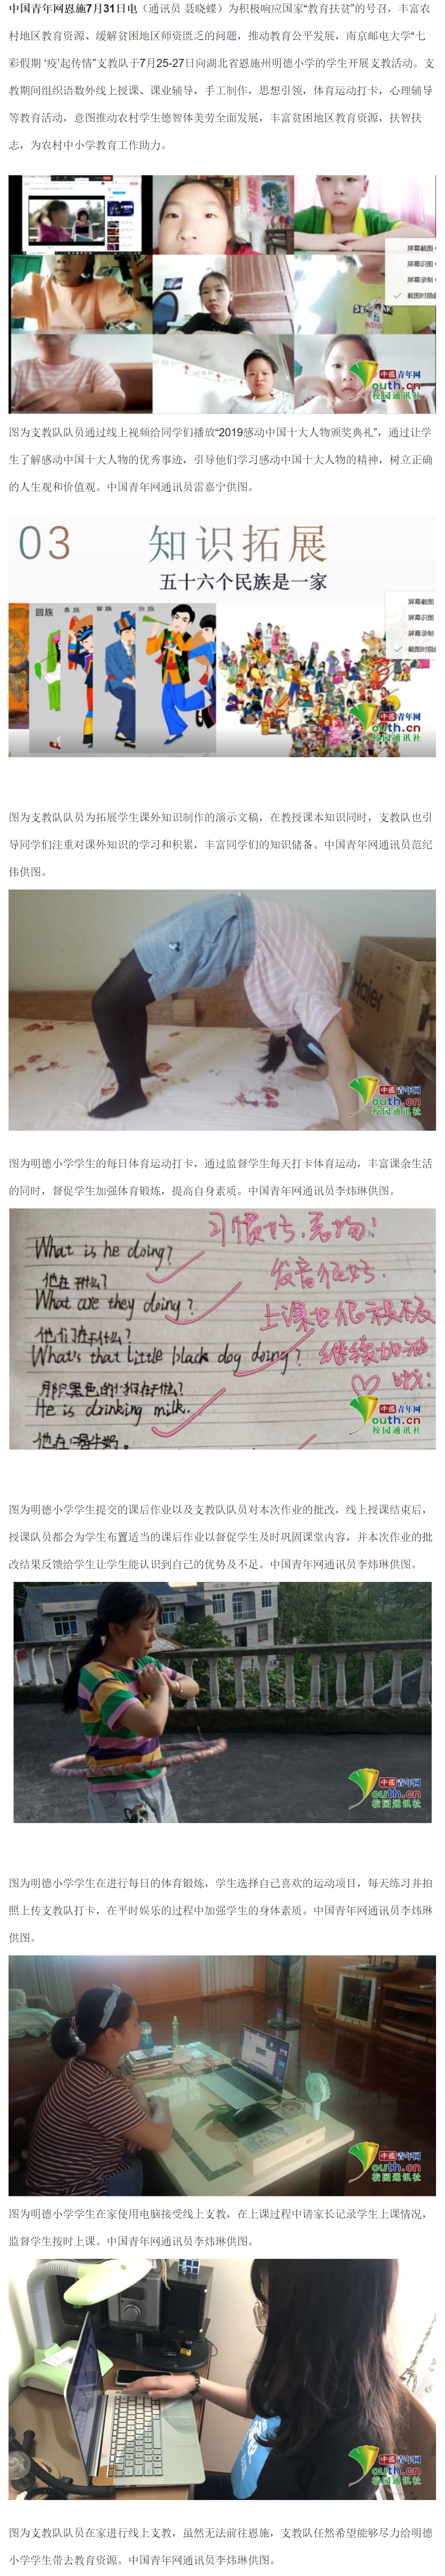 中国青年网恩施7月31日电（通讯员 聂晓蝶）为积极响应国家“教育扶贫”的号召，丰富农
村地区教育资源、缓解贫困地区师资匮乏的问题，推动教育公平发展，南京邮电大学“七
彩假期 ‘疫’起传情”支教队于7月25-27日向湖北省恩施州明德小学的学生开展支教活动。支
教期间组织语数外线上授课、课业辅导，手工制作，思想引领，体育运动打卡，心理辅导
等教育活动，意图推动农村学生德智体美劳全面发展，丰富贫困地区教育资源，扶智扶
志，为农村中小学教育工作助力。
屏幕截图
屏幕识图
屏幕录制
截图时隐
中国青年网
outh.cn
校园通讯社
图为支教队队员通过线上视频给同学们播放“2019感动中国十大人物颁奖典礼”，通过让学
生了解感动中国十大人物的优秀事迹，引导他们学习感动中国十大人物的精神，树立正确
的人生观和价值观。中国青年网通讯员雷嘉宁供图。
03 知识拓展
五十六个民族是一家
回族 彝族 壮族
屏幕截图
屏幕识图
屏幕录制
截图时隐
中国青年网
outh.cn
校园通讯社
图为支教队队员为拓展学生课外知识制作的演示文稿，在教授课本知识同时，支教队也引
导同学们注重对课外知识的学习和积累，丰富同学们的知识储备。中国青年网通讯员范纪
伟供图。
Haier
中国青年网
outh.cn
校园通讯社
图为明德小学学生的每日体育运动打卡，通过监督学生每天打卡体育运动，丰富课余生活
的同时，督促学生加强体育锻炼，提高自身素质。中国青年网通讯员李炜琳供图。
What is he doing?
他在干什么?
What are they doing?
他们在干什么?
What's that little black dog doing?
那只黑色的小狗在干什么?
He is drinking milk.
他在喝牛奶.
发音很好.
上课也很积极
继续加油
哦!
中国青年网
outh.cn
校园通讯社
图为明德小学学生提交的课后作业以及支教队队员对本次作业的批改，线上授课结束后，
授课队员都会为学生布置适当的课后作业以督促学生及时巩固课堂内容，并本次作业的批
改结果反馈给学生让学生能认识到自己的优势及不足。中国青年网通讯员李炜琳供图。
中国青年网
outh.cn
校园通讯社
图为明德小学学生在进行每日的体育锻炼，学生选择自己喜欢的运动项目，每天练习并拍
照上传支教队打卡，在平时娱乐的过程中加强学生的身体素质。中国青年网通讯员李炜琳
供图。
中国青年网
outh.cn
校园通讯社
图为明德小学学生在家使用电脑接受线上支教，在上课过程中请家长记录学生上课情况，
监督学生按时上课。中国青年网通讯员李炜琳供图。
中国青年网
outh.cn
校园通讯社
图为支教队队员在家进行线上支教，虽然无法前往恩施，支教队任然希望能够尽力给明德
小学学生带去教育资源。中国青年网通讯员李炜琳供图。